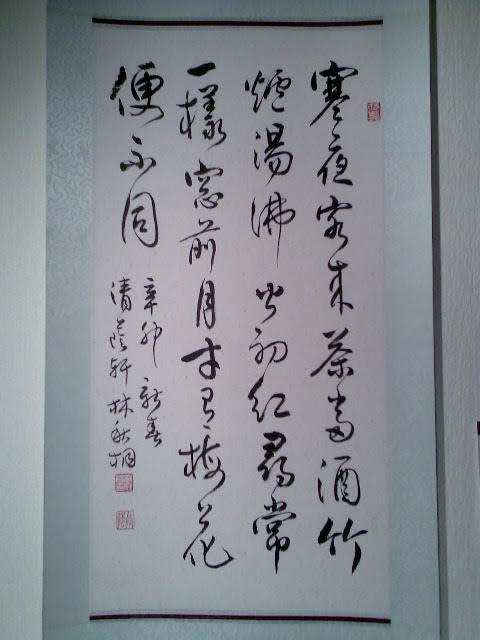 寒夜客来茶當酒竹
爐湯沸火初紅尋常
一樣窓前月才有梅花
便不同
辛卯新春
清蔭軒林秋桐